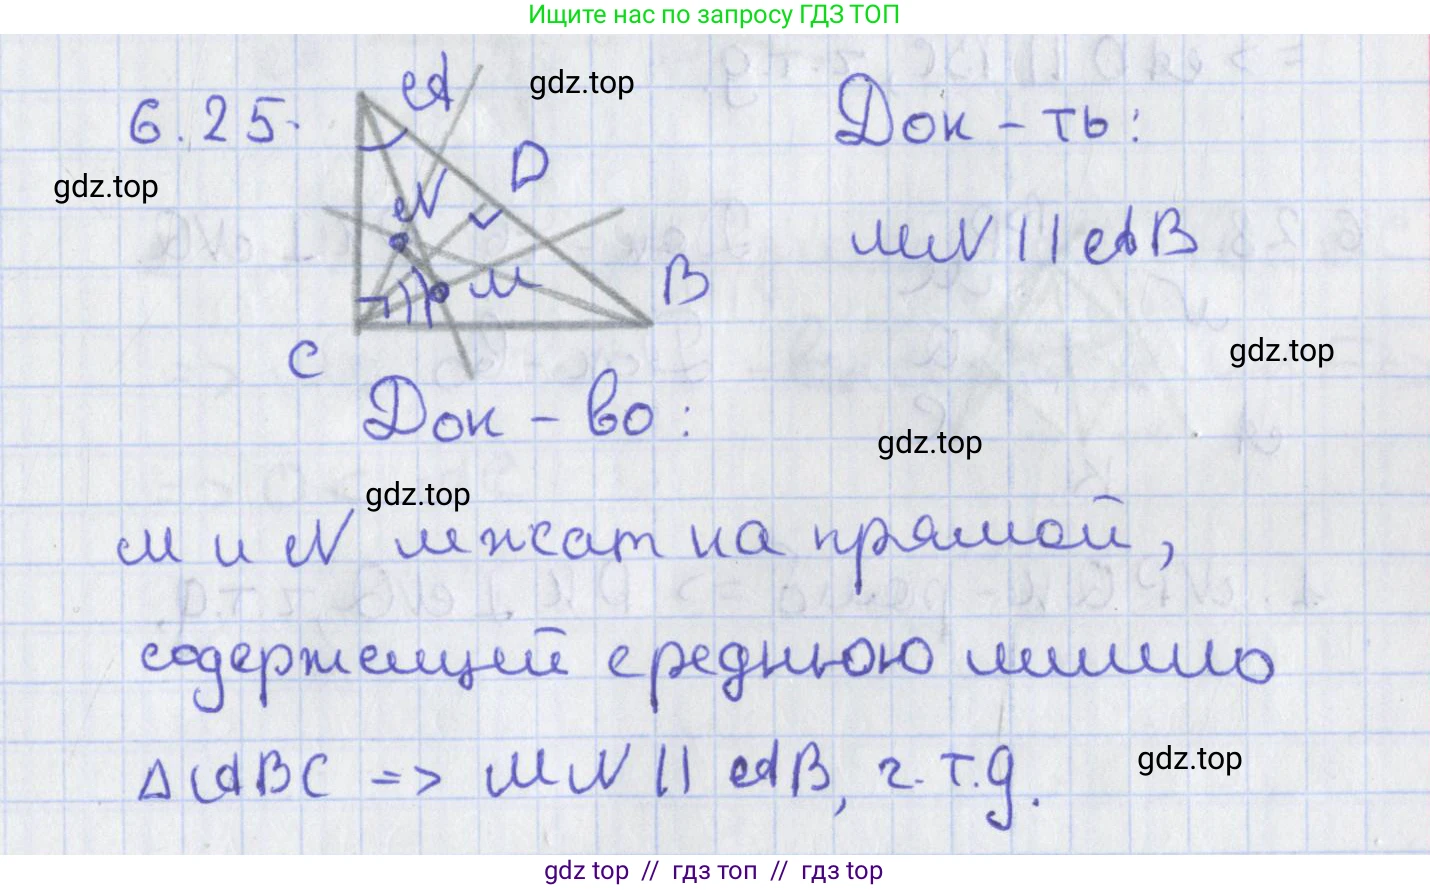 Ищите нас по запросу ГДЗ ТОП
6.25.
A
gdz.top
Док-ть:
D
gdz.top
N
MN || AB
M
B
C
gdz.top
Док-во:
gdz.top
gdz.top
M и N лежат на прямой,
содержащей среднюю линию
△ABC => MN || AB, ч.т.д.
gdz.top
gdz top // гдз топ // гдз top